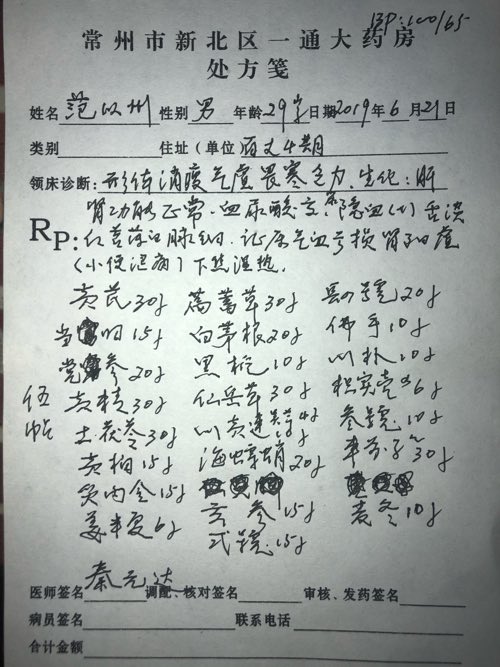 BP:100/65
常州市新北区一通大药房
处方笺
姓名 范以州 性别 男 年龄 29岁 日期 2019年6月21日
类别 住址(单位 百丈
领床诊断:形体消瘦气虚畏寒乏力.生化:肝
肾功能正常.血尿酸高.尿隐血(+)舌淡
RP: 红苔薄白脉细.证属气血亏损肾阳虚
(小便混浊)下焦湿热.
黄芪30g 萹蓄草30g 20g
当归15g 白茅根20g 佛手10g
党参20g 黑栀10g 川朴10g
伍帖
黄精30g 仙鹤草30g 枳实壳各6g
土茯苓30g 川黄连 10g
黄柏15g 海螵蛸20g 车前子30g
炙内金15g 玄参15g 麦冬10g
姜半夏6g 15g
医师签名 秦元达 调配、核对签名 审核、发药签名
病员签名 联系电话
合计金额